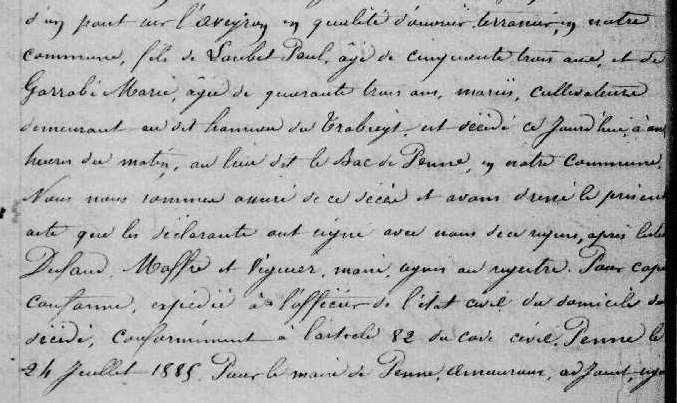 d'un pont sur l'aveyron en qualité d'ouvrier terrassier, en notre
commune, fils de Loubet Paul, âgé de cinquante trois ans, et de
Garrabé Marie, âgée de quarante trois ans, mariés, cultivateurs
demeurant au dit hameau du est décédé ce Jourd'hui, à
heures du matin, au lieu dit le Bac de Penne, en notre commune.
Nous nous sommes assuré de ce décès et avons dressé le présent
acte que les déclarants ont signé avec nous de ce requis, après lecture
Dufaud, Maffre et Viguier, maire, signés au registre. Pour copie
conforme, expédié à l'officier de l'état civil du domicile du
décédé, conformément à l'article 82 du code civil. Penne le
24 Juillet 1885. Pour le maire de Penne, adjoint,